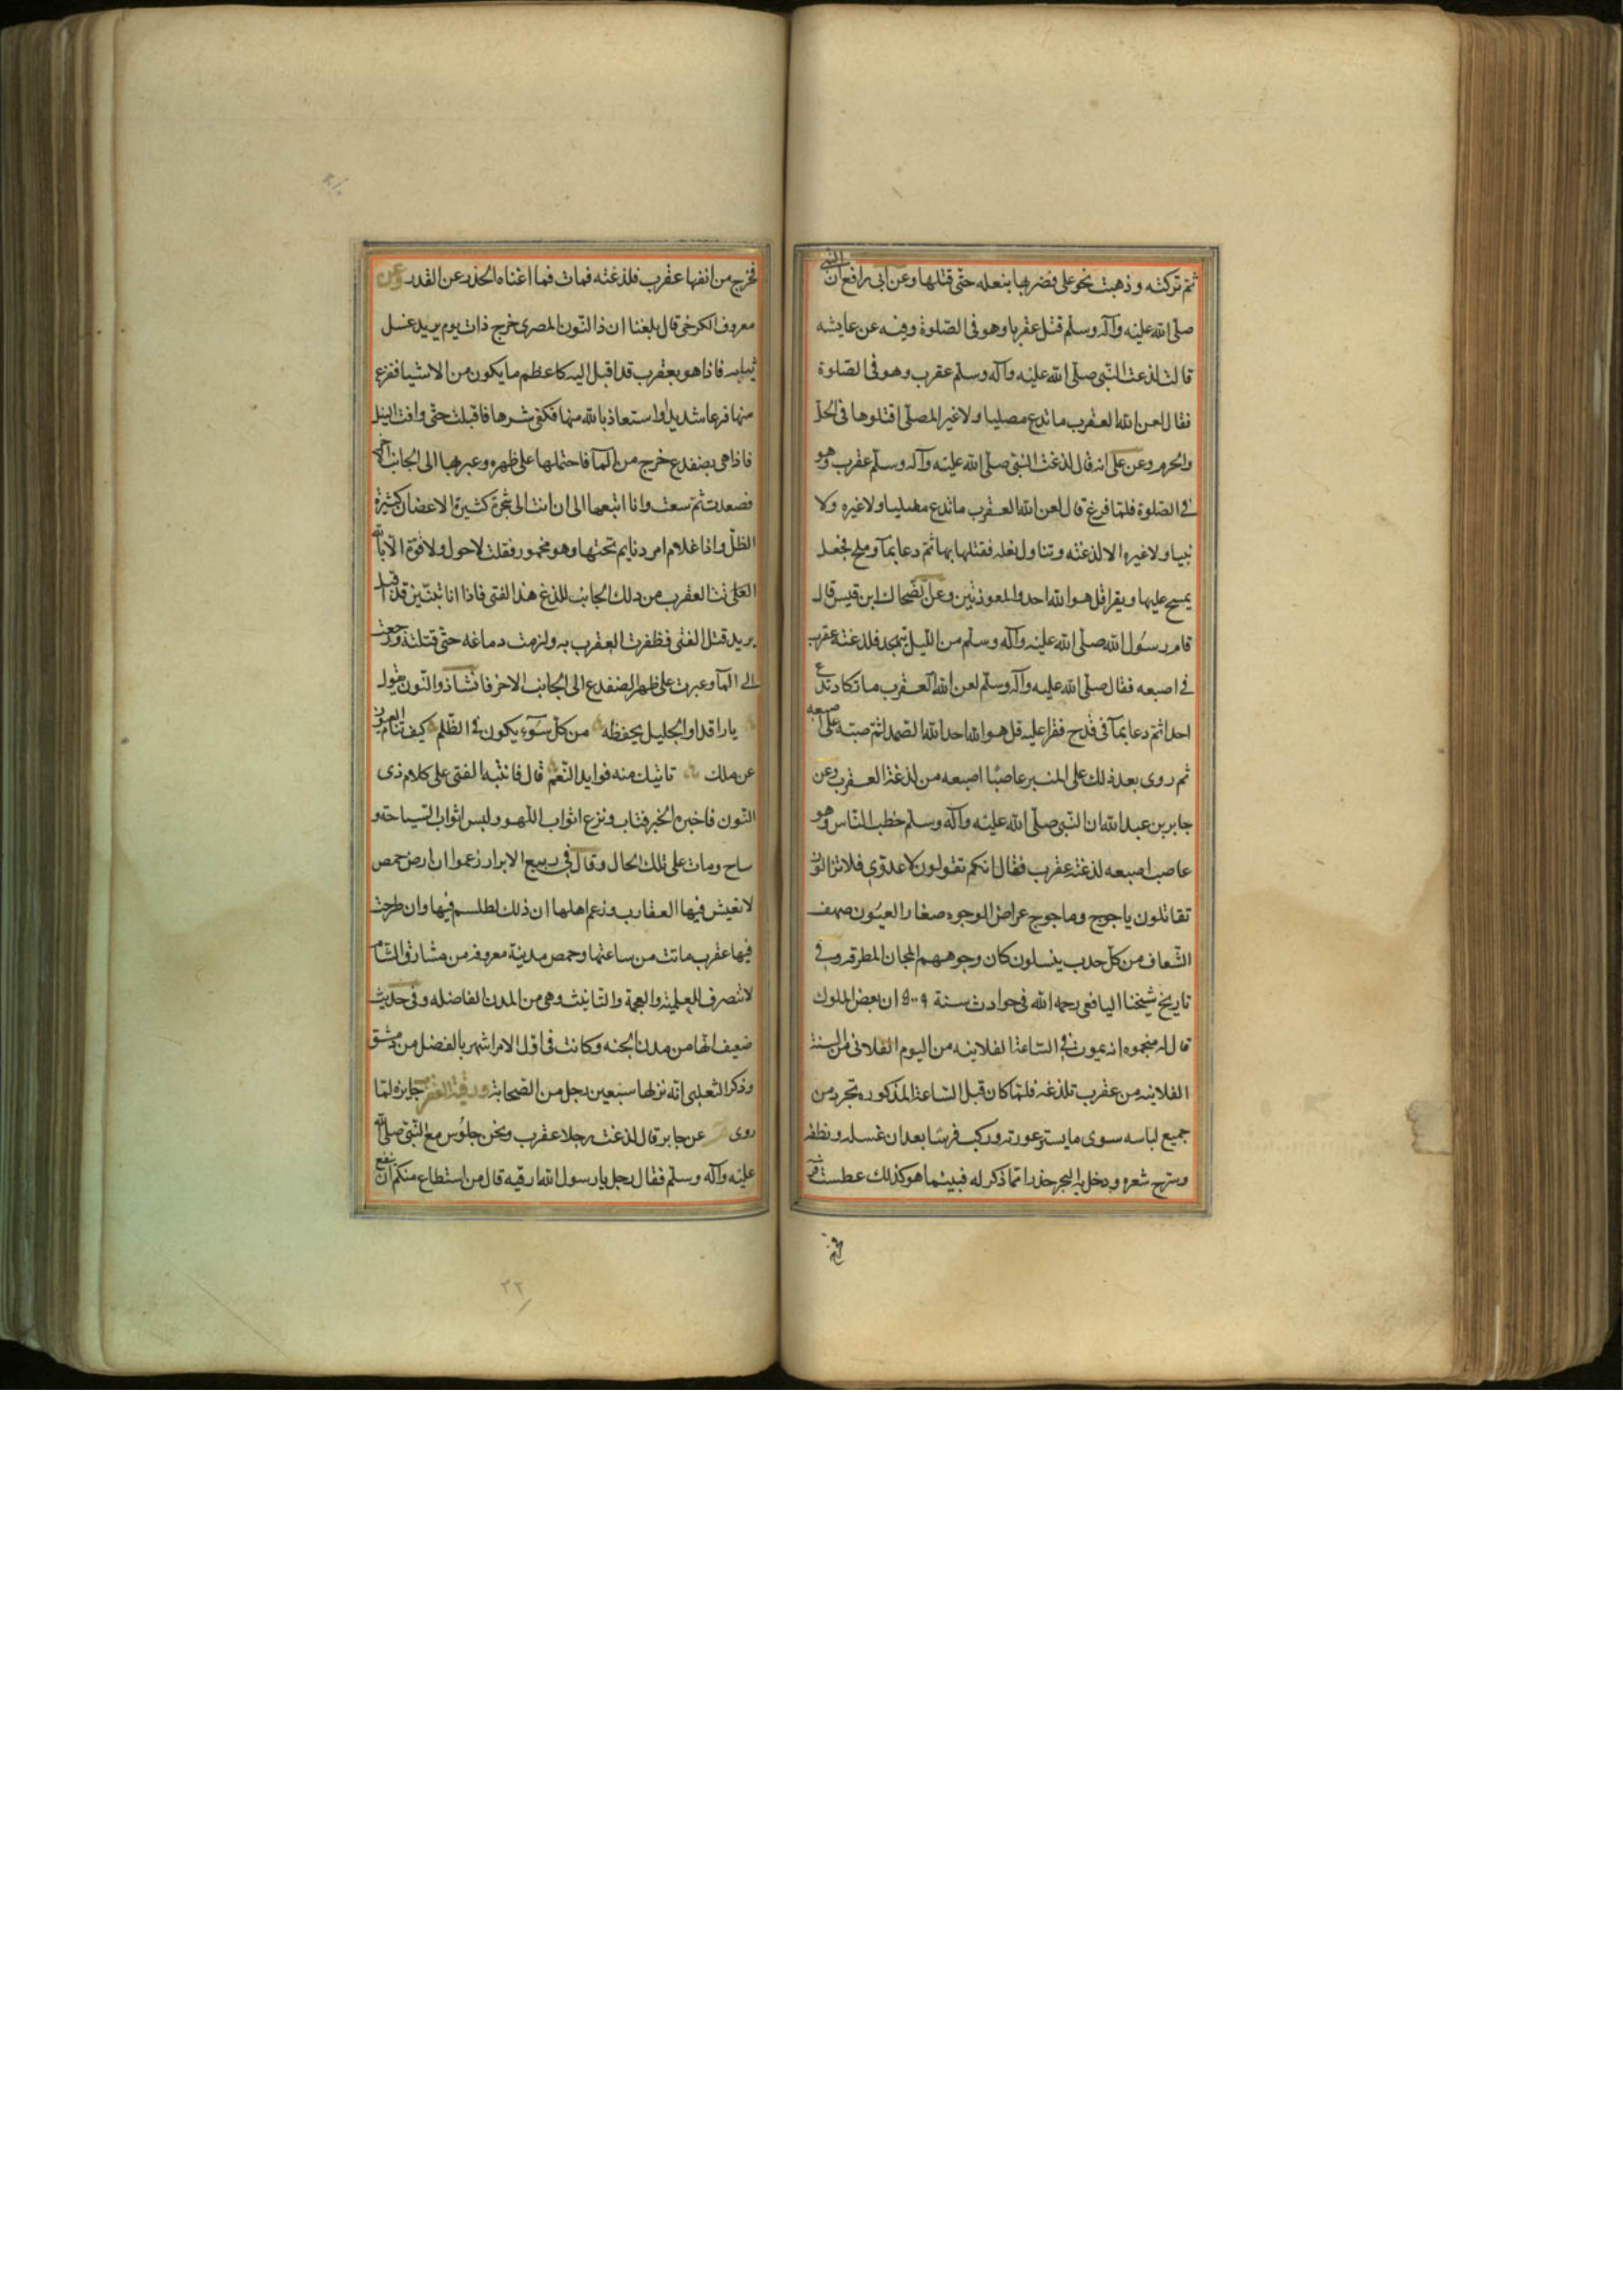 ثم تركته وذهبت نحو على فضربها بنعله حتى قتلها وعن ابى رافع ان النبى
صلى الله عليه وآله وسلم قتل عقربا وهو فى الصلوة وفيه عن عايشه
قالت لذعت النبى صلى الله عليه وآله وسلم عقرب وهو فى الصلوة
فقال لعن الله العقرب ماتدع مصليا ولا غير المصلى اقتلوها فى الحل
والحرم وعن على انه قال لذغت النبى صلى الله عليه وآله وسلم عقرب وهو
فى الصلوة فلما فرغ قال لعن الله العقرب ماتدع مصليا ولا غيره ولا
نبيا ولا غيره الا لذغته وتناول نعله فقتلها بها ثم دعا بمآ وملح فجعل
يمسح عليها ويقرا قل هو الله احد والمعوذتين وعن الضحاك ابن قيس قال
قام رسول الله صلى الله عليه وآله وسلم من الليل يتهجد فلدغته عقرب
فى اصبعه فقال صلى الله عليه وآله وسلم لعن الله العقرب ما تكاد تدع
احدا ثم دعا بمآ فى قدح فقرا عليه قل هو الله احد الله الصمد ثم صبته على اصبعه
ثم روى بعد ذلك على المنبر عاصبا اصبعه من لذغة العقرب وعن
جابر بن عبد الله ان النبى صلى الله عليه وآله وسلم خطب الناس وهو
عاصب اصبعه لذغته عقرب فقال انكم تقولون لا عدوى فلا تزالون
تقاتلون ياجوج وماجوج عراض الوجوه صغار العيون صهف
الشعاف من كل حدب ينسلون كان وجوههم المجان المطرقه وفى
تاريخ شيخنا اليافعى رحمه الله فى حوادث سنة ٩٠٠٩ ان بعض الملوك
قال له منجموه انه يموت فى الساعة الفلانيه من اليوم الفلانى من السنة
الفلانيه من عقرب تلذغه فلما كان قبل الساعة المذكوره تجرد من
جميع لباسه سوى مايستر عورته وركب فرسا بعد ان غسله ونظفه
وسرح شعره ودخل به البحر حذرا مما ذكر له فبينما هو كذلك عطست فرسه
فخرج
فخرج من انفها عقرب فلذغته فمات فما اغناه الحذر عن القدر وعن
معروف الكرخى قال بلغنا ان ذا النون المصرى خرج ذات يوم يريد غسل
ثيابه فاذا هو بعقرب قد اقبل اليه كاعظم مايكون من الاشيا ففزع
منها فزعا شديدا واستعاذ بالله منها فكفى شرها فاقبلت حتى وافت النيل
فاذا هى بضفدع خرج من المآ فاحتملها على ظهره وعبر بها الى الجانب الاخر
فصعدت ثم سعت وانا اتبعها الى ان اتت الى شجرة كثيرة الاغصان كثيرة
الظل واذا غلام امرد نايم تحتها وهو مخمور فقلت لاحول ولا قوة الا بالله
العلى اتت العقرب من ذلك الجانب للذغ هذا الفتى فاذا انا بتنين قد اقبل
يريد قتل الفتى فظفرت العقرب به ولزمت دماغه حتى قتلته ورجعت
الى المآ وعبرت على ظهر الضفدع الى الجانب الاخر فانشا ذوالنون يقول
يا راقدا والجليل يحفظه من كل سوء يكون فى الظلم كيف تنام العيون
عن ملك تاتيك منه فوايد النعم قال فانتبه الفتى على كلام ذى
النون فاخبره الخبر فتاب ونزع اثواب اللهو ولبس اثواب السياحة و
ساح ومات على تلك الحال وقال فى ربيع الابرار زعموا ان ارض حمص
لا تعيش فيها العقارب وزعم اهلها ان ذلك لطلسم فيها وان طرحت
فيها عقرب ماتت من ساعتها وحمص مدينة معروفه من مشارق الشام
لا تنصرف للعلمية والعجمة والتانيث وهى من المدن الفاضله وفى حديث
ضعيف انها من مدن الجنه وكانت فى اول الامر اشهر بالفضل من دمشق
وذكر الثعلبى انه نزلها سبعين رجل من الصحابة ورقية العقرب جايزه لما
روى عن جابر قال لذغت رجلا عقرب ونحن جلوس مع النبى صلى الله
عليه وآله وسلم فقال رجل يا رسول الله ارقيه قال من استطاع منكم ان ينفع
٢٢